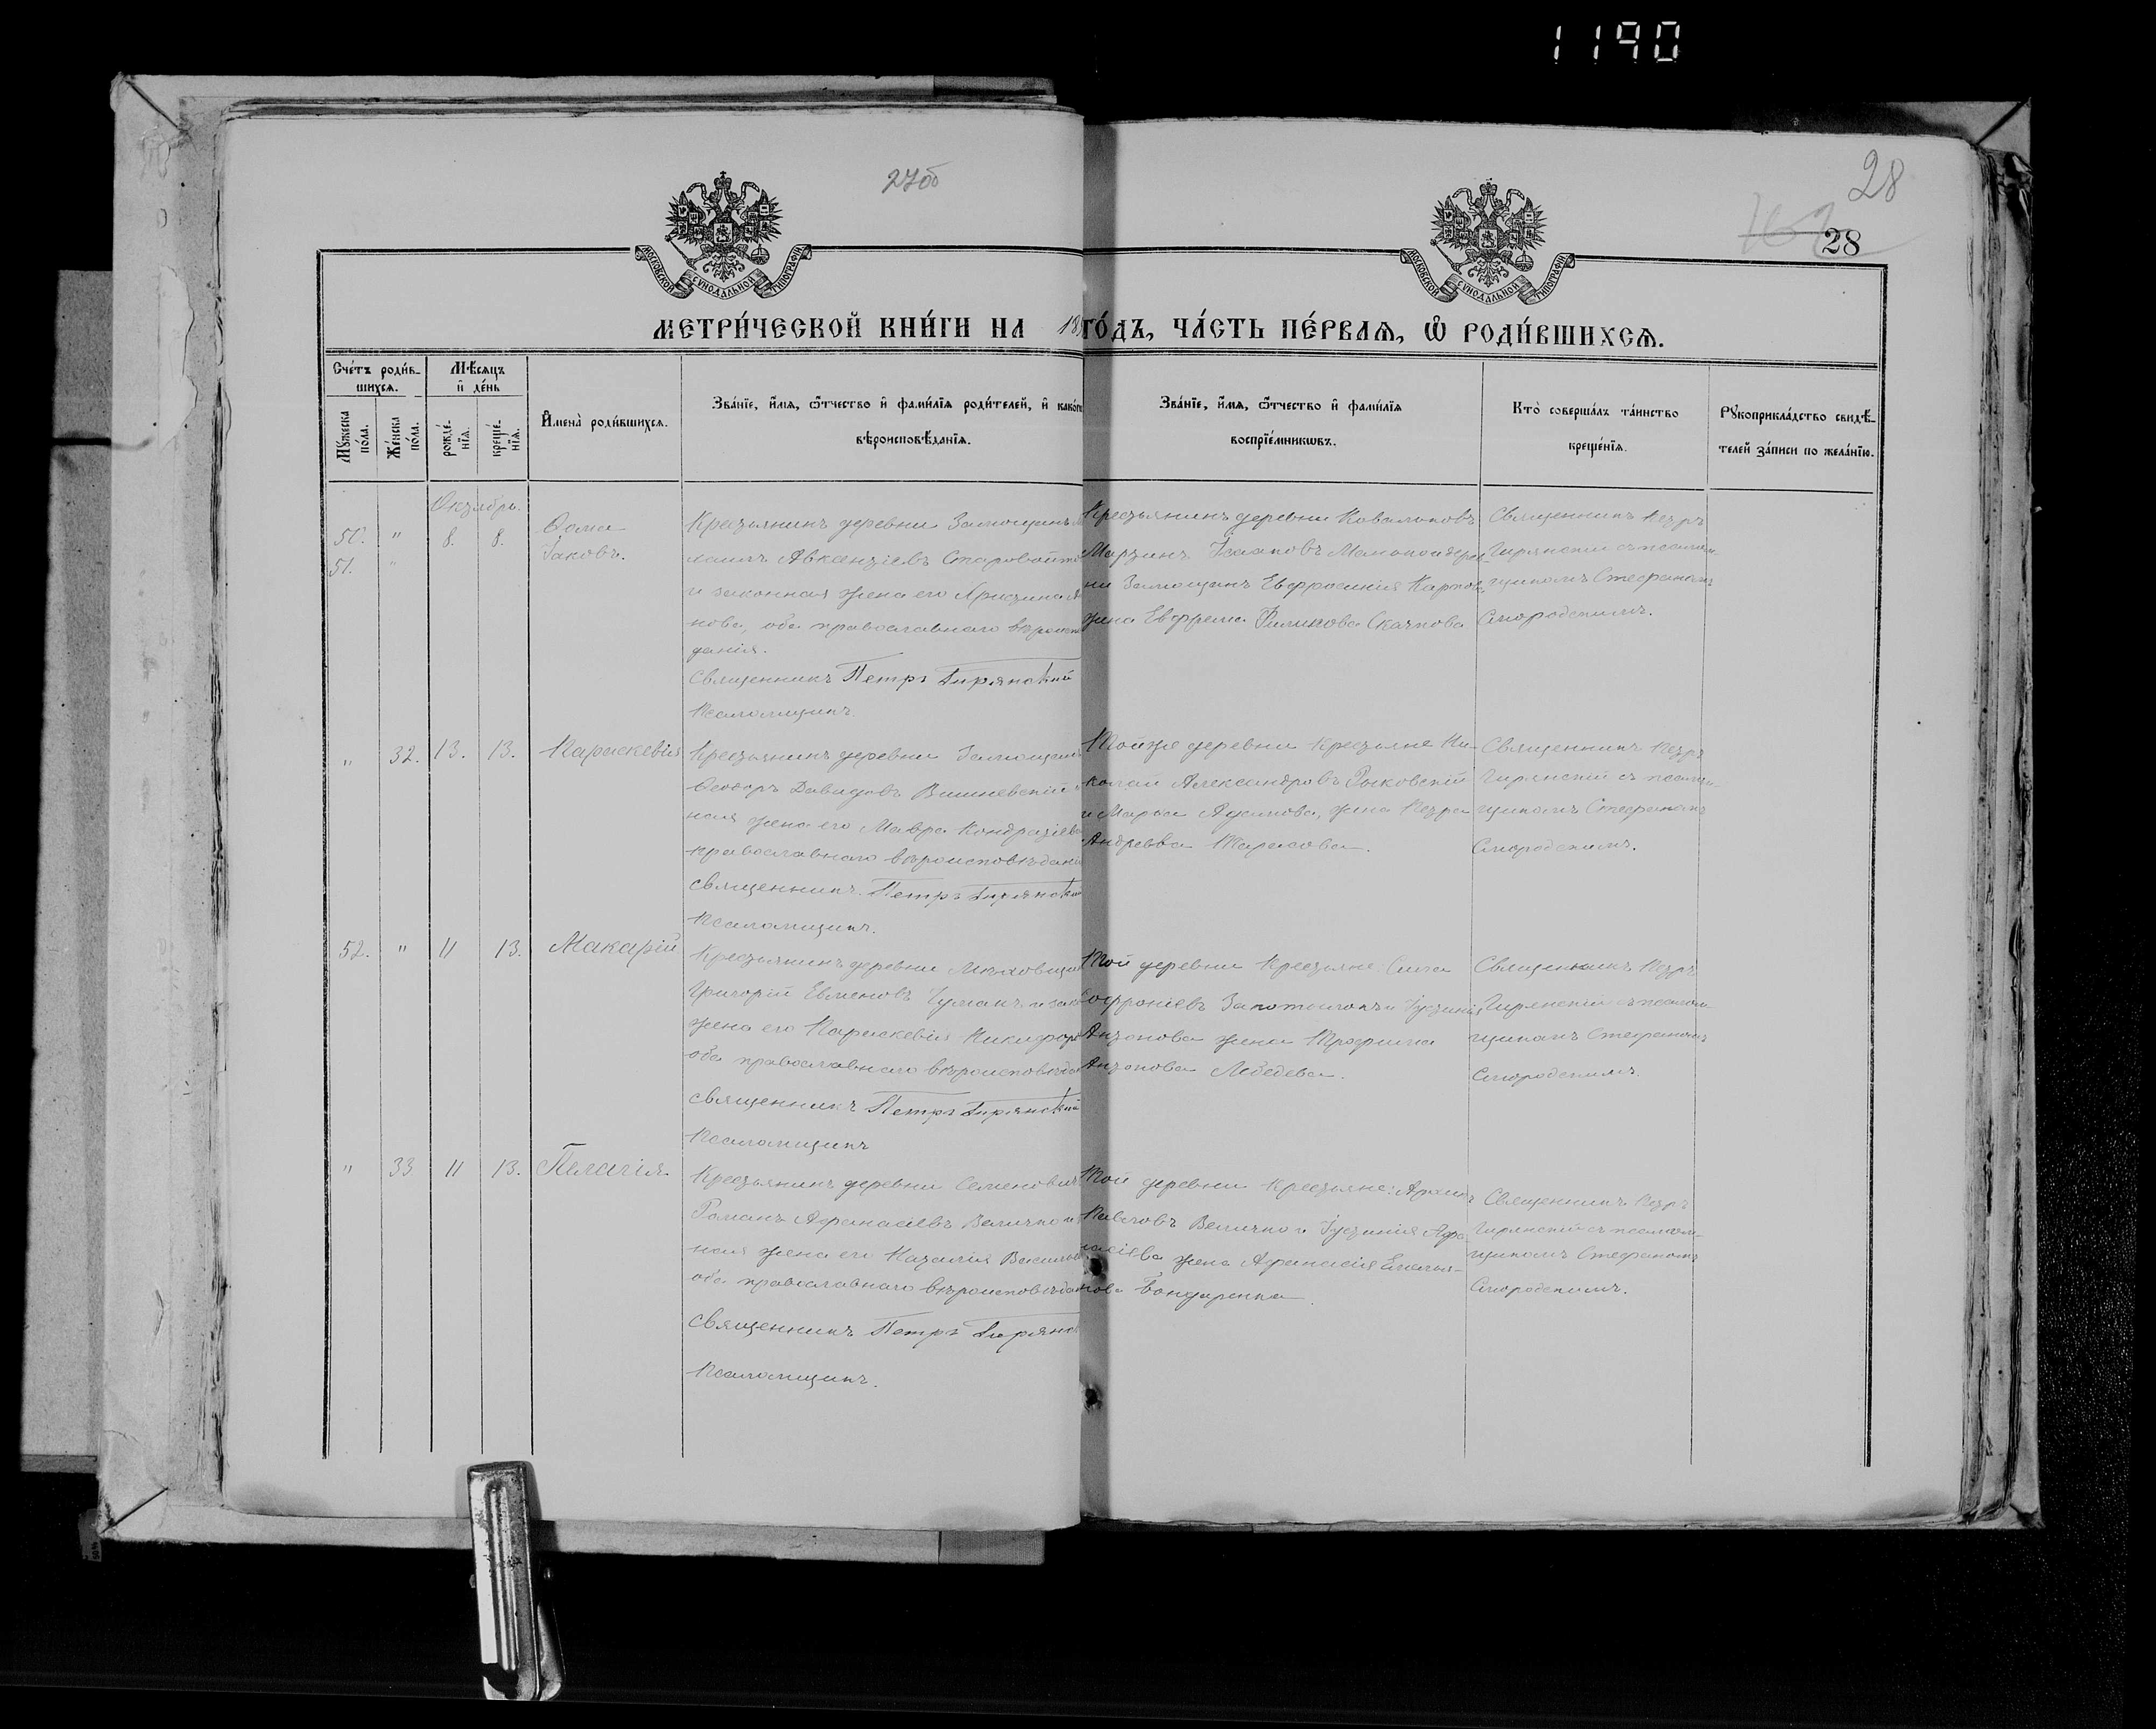 1190
27об
28
28
МОСКОВСКОЙ СѴНОДАЛЬНОЙ ТИПОГРАФІИ
МОСКОВСКОЙ СѴНОДАЛЬНОЙ ТИПОГРАФІИ
МЕТРИ́ЧЕСКОЙ КНИ́ГИ НА 18 ГО́ДЪ, ЧА́СТЬ ПЕ́РВАѦ, Ѡ҆ РОДИ́ВШИХСѦ.
Сче́тъ роди́в-
шихсѧ.
Мꙋ́жеска
по́ла.
Же́нска
по́ла.
Мѣ́сѧцъ
и҆ де́нь
рожде́-
нїѧ.
креще́-
нїѧ.
И҆мена̀ роди́вшихсѧ.
Зва́нїе, и҆́мѧ, ѻ҆́тчество и҆ фами́лїѧ роди́телей, и҆ како́гѡ
вѣроисповѣ́данїѧ.
Зва́нїе, и҆́мѧ, ѻ҆́тчество и҆ фами́лїѧ
воспрїе́мникѡвъ.
Кто̀ соверша́лъ та́инство
креще́нїѧ.
Рꙋкоприкла́дство свидѣ́-
телей за́писи по жела́нїю.
Октябрь.
50. " 8. 8. Ѳома
51. " Іаковъ.
Крестьянинъ деревни Замощанъ
Авксентіевъ Старовойто
и законная жена его Христина
нова, оба православнаго вѣроиспо
данія.
Священникъ Петръ Гирянскій
Псаломщикъ
Крестьянинъ деревни Ковальковъ
Мартинъ Исааковъ дерев-
ни Замощанъ Евфросинія Карпова
жена Евфрема Филипова Скачкова
Священникъ Петръ
Гирянскій съ псалом-
щикомъ Стефаномъ
Смородскимъ.
" 32. 13. 13. Параскевія
Крестьянинъ деревни Замощанъ
Ѳеодоръ Давидовъ Вишневскій
ная жена его Мавра Кондратіева
православнаго вѣроисповѣдані
священникъ Петръ Гирянскій
Псаломщикъ.
Той же деревни крестьяне Ни-
колай Александровъ Рыковскій
и Марья Адамова, жена Петра
Андреева Тарасова.
Священникъ Петръ
Гирянскій съ псалом-
щикомъ Стефаномъ
Смородскимъ.
52. " 11 13. Макарій
Крестьянинъ деревни
Григорій Евменовъ Чумакъ и зако
жена его Параскевія Никифоро
оба православнаго вѣроисповѣда
священникъ Петръ Гирянскій
Псаломщикъ
Той деревни крестьяне: Сила
Софроніевъ и Іустинія
Антонова жена Трофима
Антонова Лебедева.
Священникъ Петръ
Гирянскій съ псалом
щикомъ Стефаномъ
Смородскимъ.
" 33 11 13. Пелагія.
Крестьянинъ деревни Семеновичъ
Романъ Афанасіевъ Величко и
ная жена его Наталія Василье
оба православнаго вѣроисповѣда
священникъ Петръ Гирянс
Псаломщикъ.
Той деревни крестьяне:
Павловъ Величко и Іустинія Афа-
насіева жена Афанасія Емелья-
нова Бондаренка.
Священникъ Петръ
Гирянскій съ псалом-
щикомъ Стефаномъ
Смородскимъ.